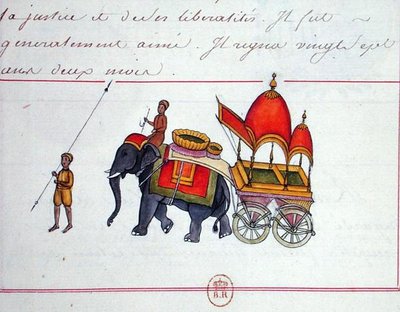 sa justice et de ses liberalités. Il fut
generalement aimé. Il regna vingt sept
ans deux mois.
B.R